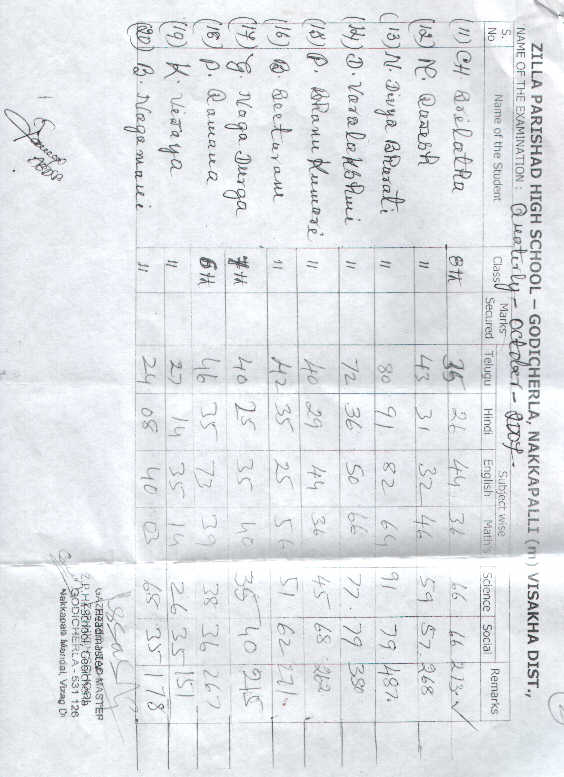 ZILLA PARISHAD HIGH SCHOOL – GODICHERLA, NAKKAPALLI (m) VISAKHA DIST.,
NAME OF THE EXAMINATION : Quaterly - october - 2009.
S. No Name of the Student Class Marks Secured Subject wise Remarks
Telugu Hindi English Maths Science Social
(11) CH Srilatha 8th 35 26 44 36 66 66 273 ✓
(12) M. Rajesh 11 43 31 32 46 59 57 268
(13) N. Divya Bharati 11 80 91 82 64 91 79 487
(14) D. Varalakshmi 11 72 36 50 66 77 79 380
(15) P. Bhanu Kumari 11 40 29 44 36 45 68 262
(16) B. Seetaram 11 42 35 25 56 51 62 271
(17) G. Naga Durga 7th 40 25 35 40 35 40 215
(18) P. Ramana 6th 46 35 73 39 38 36 267
(19) K. Vijaya 11 27 14 35 14 26 35 151
(20) B. Nagamani 11 24 08 40 03 68 35 178
Headmaster
Z.P.H. School, Godicherla
GODICHERLA - 531 126
Nakkapalli Mandal, Vizag Di